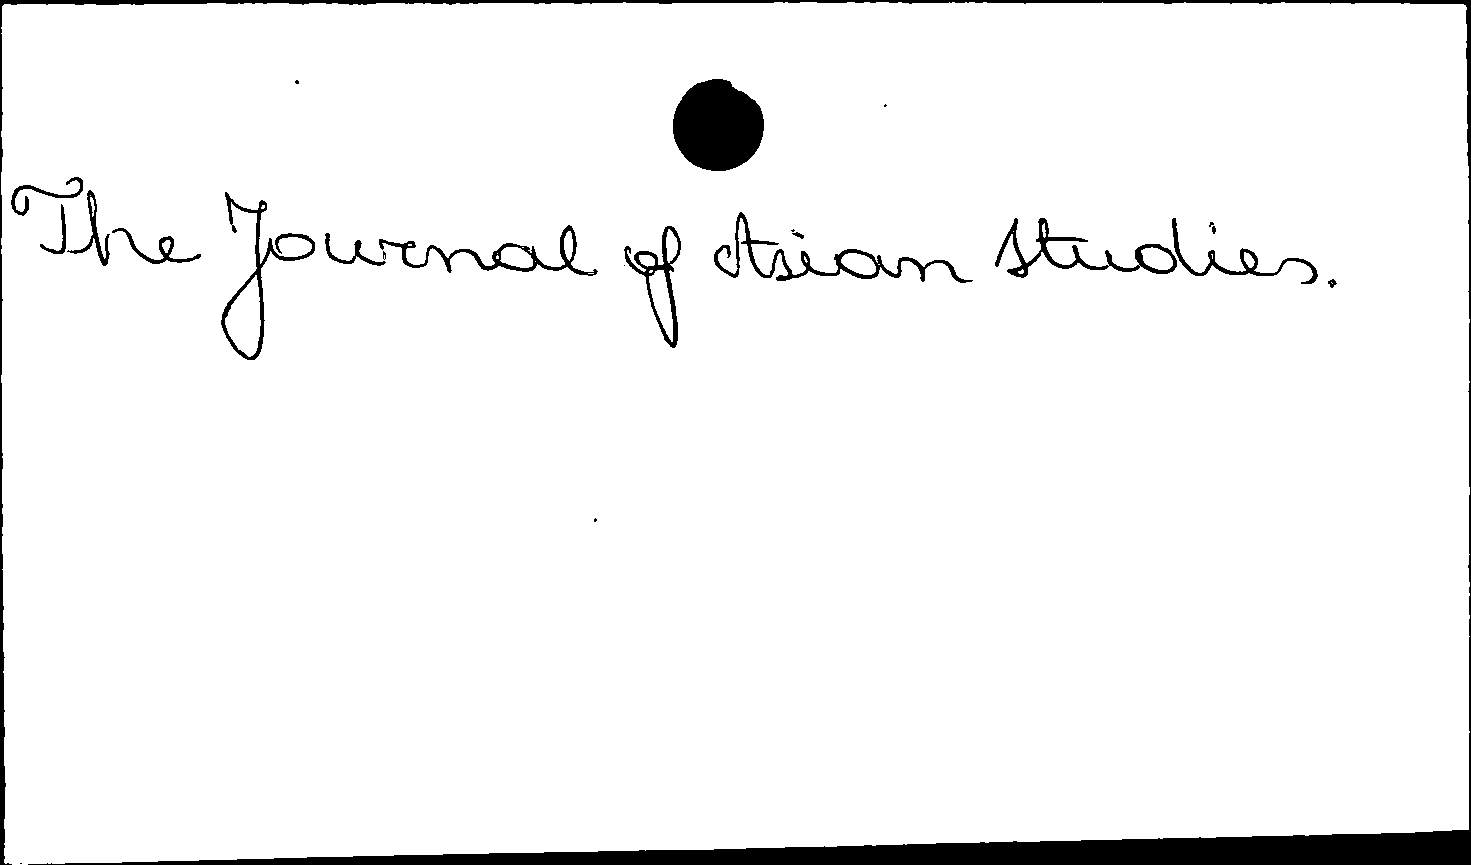 The Journal of Asian Studies.